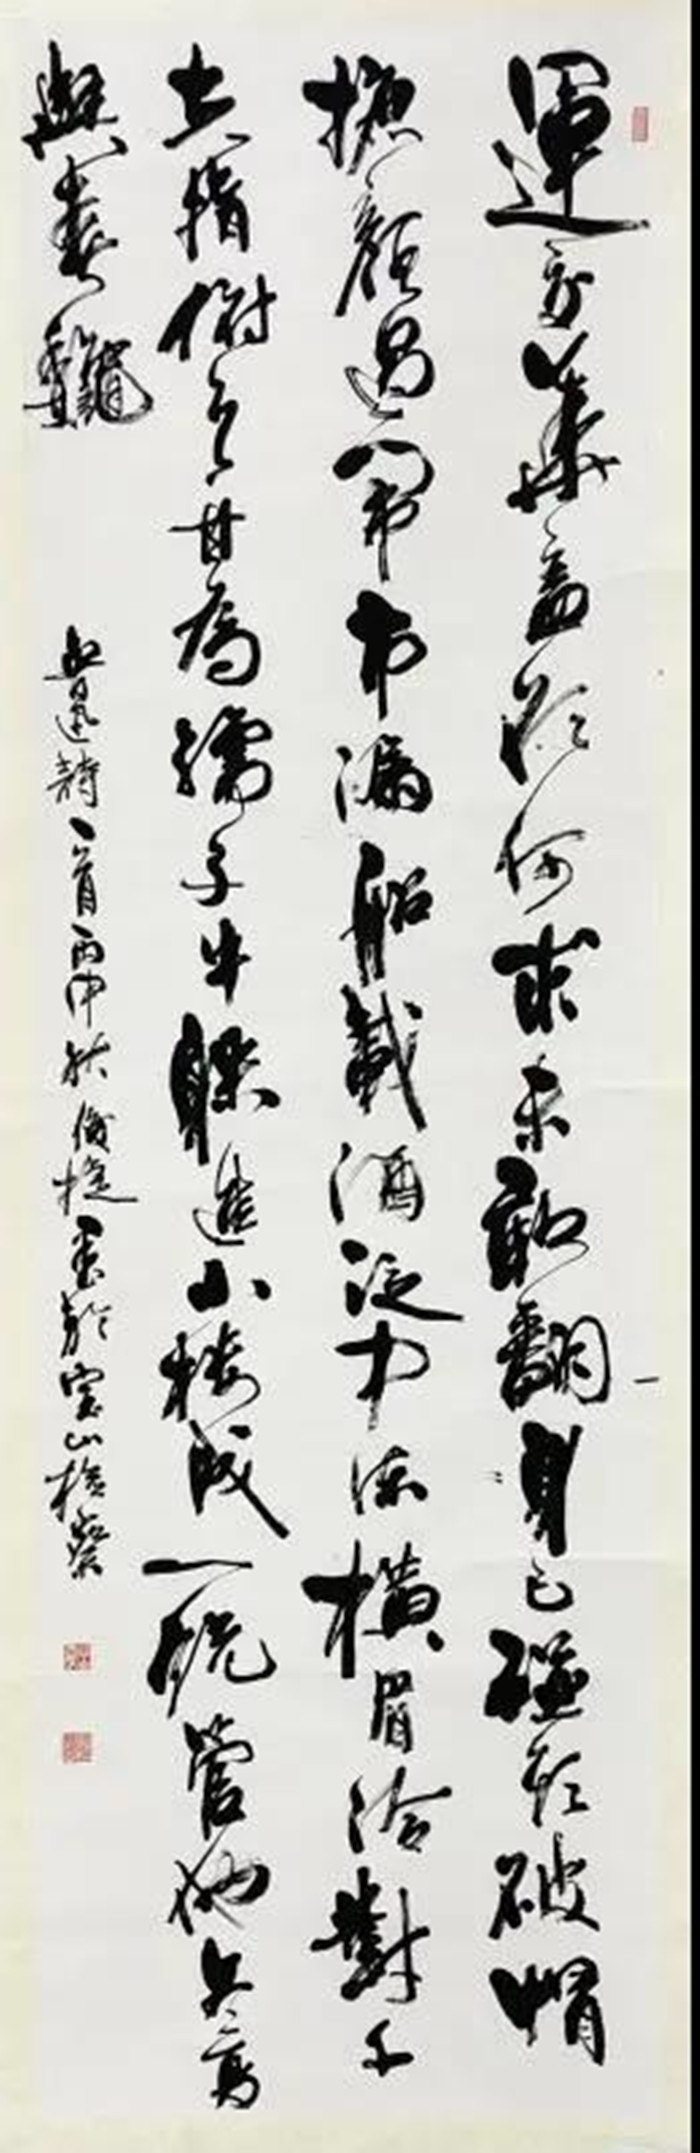 運交華蓋欲何求未敢翻身已碰頭破帽
摭顏過鬧市漏船載酒泛中流橫眉冷對千
夫指俯首甘為孺子牛躲進小樓成一統管他冬夏
與春龝
魯迅詩一首丙申秋俊捷書於寶山檢察